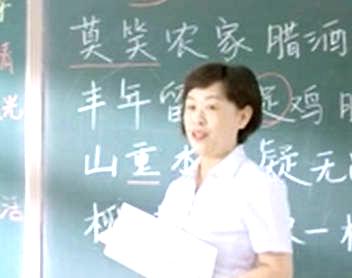 莫笑农家腊酒
丰年留 足鸡
山重水 疑无
柳 又一
光
活